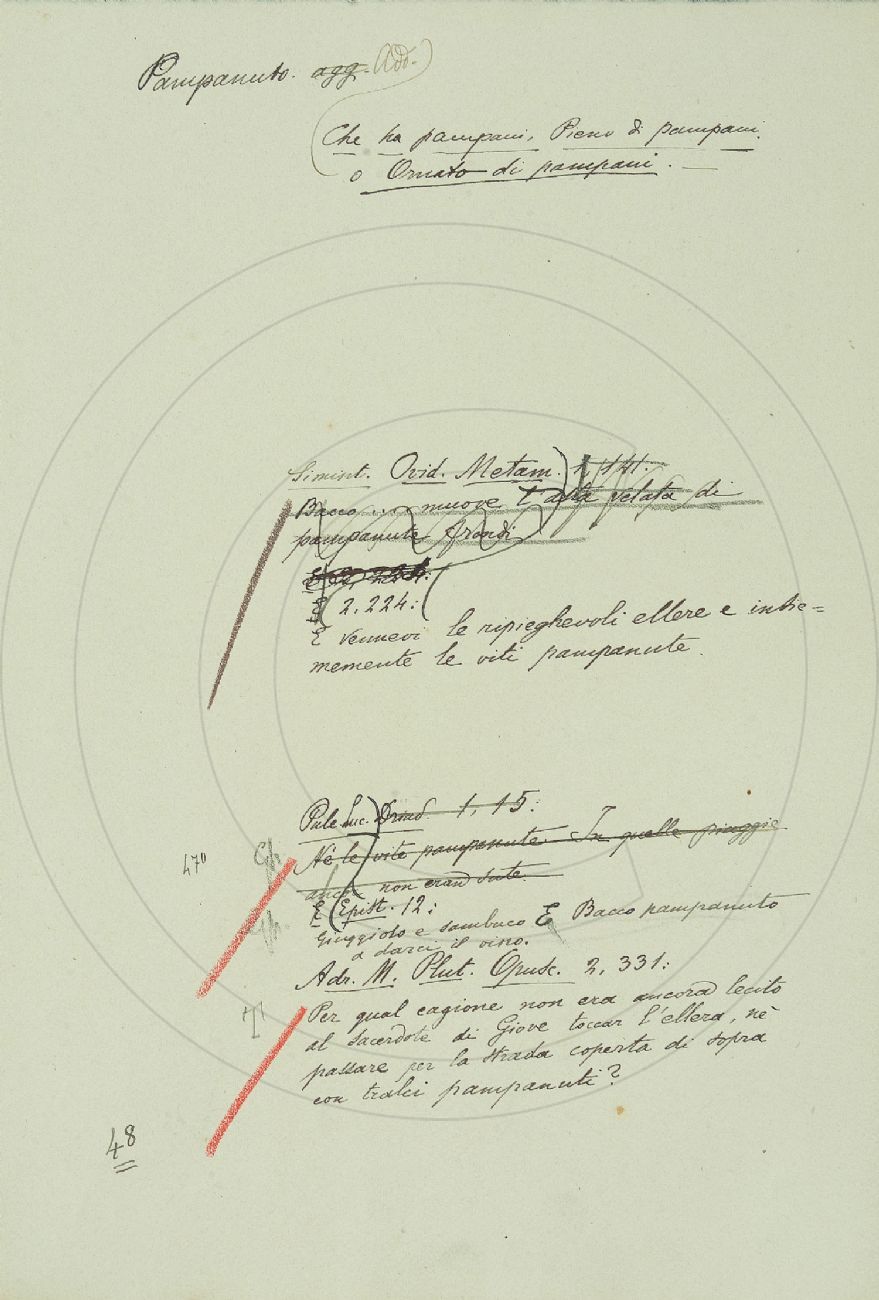 Pampanuto. agg. Add.
Che ha pampani, Pieno di pampani,
o Ornato di pampani. —
Simint. Ovid. Metam. 1, 141.
Bacco ... muove l'asta velata di
pampanute frondi
E 2, 224:
E 2, 224:
E vennevi le ripieghevoli ellere e insie=
memente le viti pampanute.
Pule Luc. 1, 15:
Nè le vite pampanute In quelle piaggie
ancor non eran sute.
E Epist. 12:
Giuggiolo e sambuco E Bacco pampanuto
a darci il vino.
470
Adr. M. Plut. Opusc. 2, 331:
Per qual cagione non era ancora lecito
al sacerdote di Giove toccar l'ellera, nè
passare per la strada coperta di sopra
con tralci pampanuti?
48